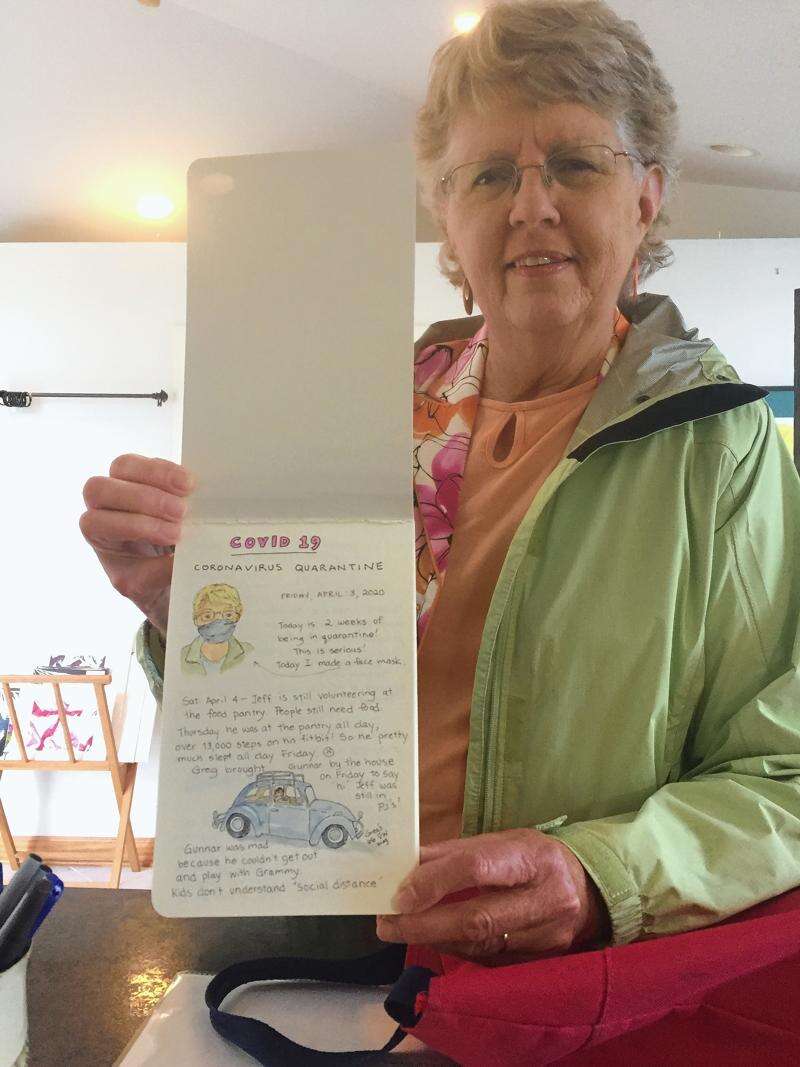 COVID 19
CORONAVIRUS QUARANTINE
FRIDAY, APRIL 3, 2020
Today is 2 weeks of
being in quarantine!
This is serious!
Today I made a face mask.
Sat April 4 - Jeff is still volunteering at
the food pantry. People still need food.
Thursday he was at the pantry all day,
over 13,000 steps on his fitbit! So he pretty
much slept all day Friday.
Greg brought Gunnar by the house
on Friday to say
"hi" Jeff was
still in
PJ's!
Greg's
VW
Gunnar was mad
because he couldn't get out
and play with Grammy.
Kids don't understand "social distance"